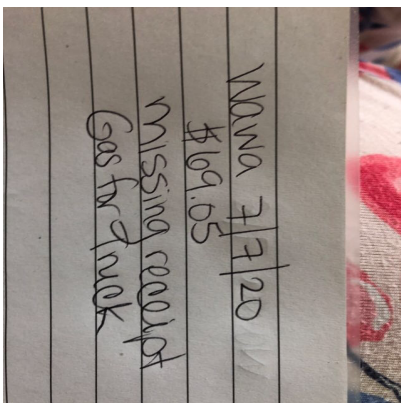 Wawa 7/7/20
$69.05
missing receipt
Gas for Truck